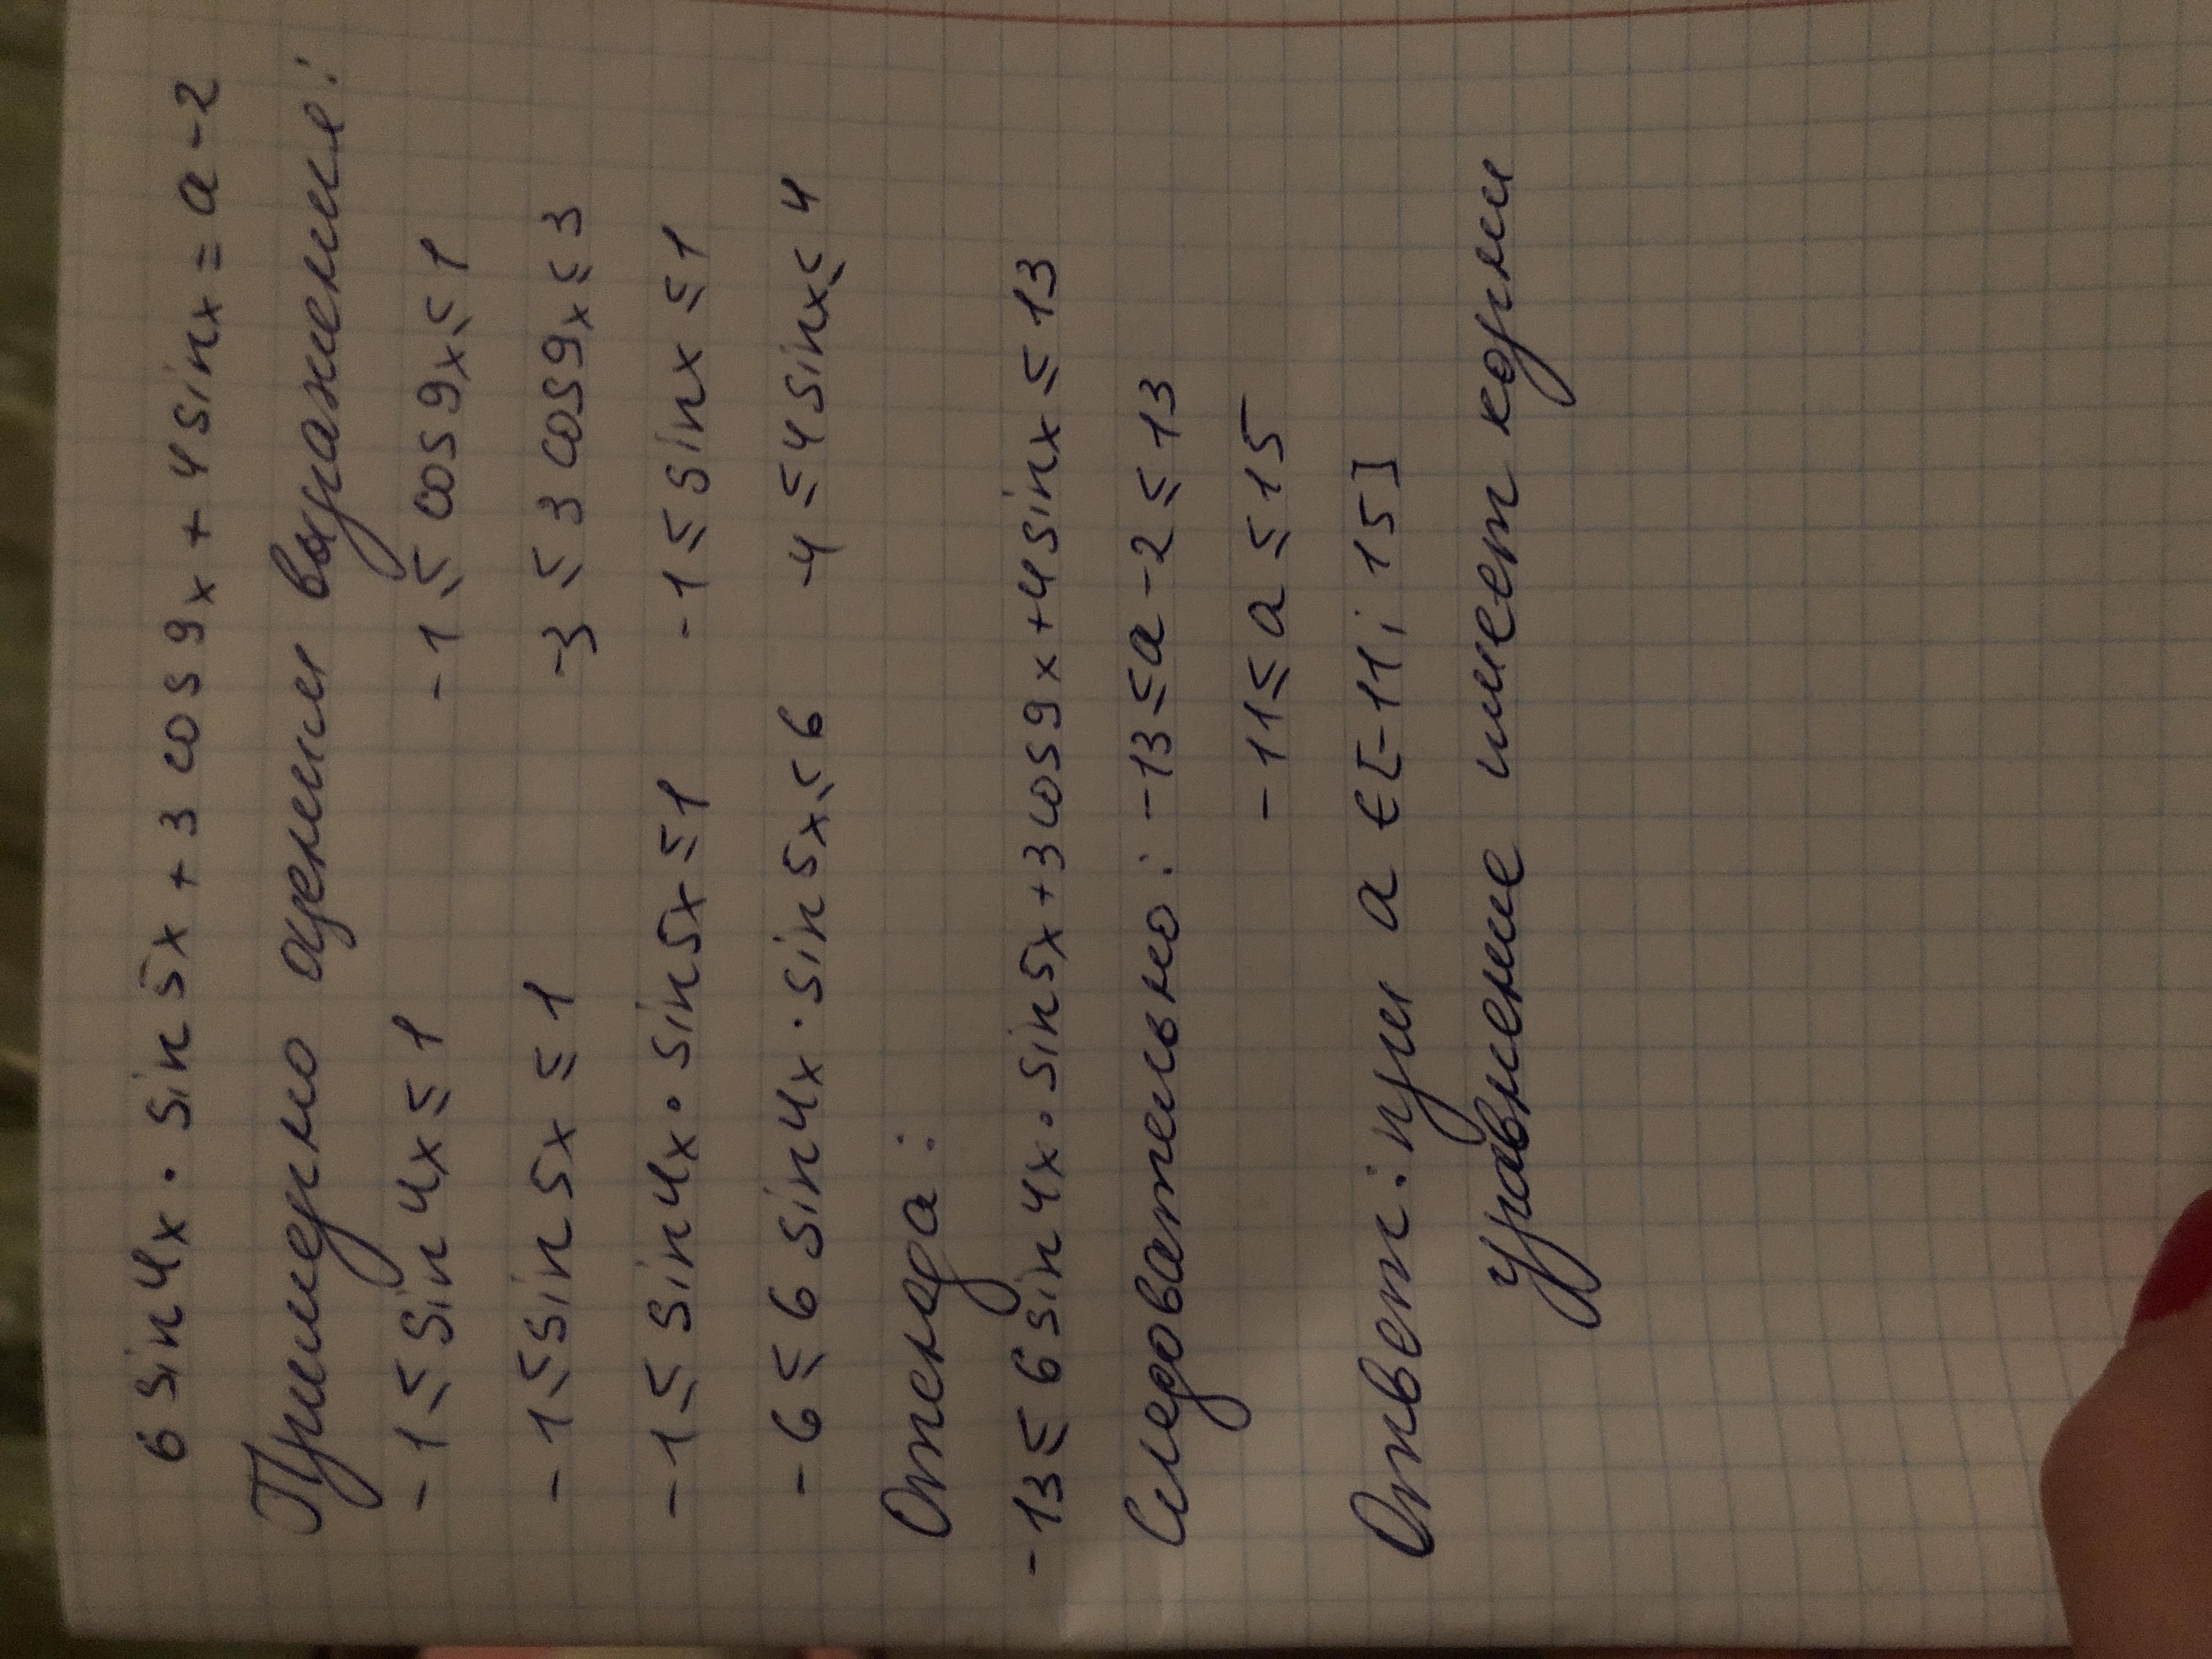 6 sin 4x · sin 5x + 3 cos 9x + 4 sin x = a - 2
Примерно оценим выражения:
-1 ≤ sin 4x ≤ 1 -1 ≤ cos 9x ≤ 1
-1 ≤ sin 5x ≤ 1 -3 ≤ 3 cos 9x ≤ 3
-1 ≤ sin 4x · sin 5x ≤ 1 -1 ≤ sin x ≤ 1
-6 ≤ 6 sin 4x · sin 5x ≤ 6 -4 ≤ 4 sin x ≤ 4
Отсюда:
-13 ≤ 6 sin 4x · sin 5x + 3 cos 9x + 4 sin x ≤ 13
Следовательно: -13 ≤ a - 2 ≤ 13
-11 ≤ a ≤ 15
Ответ: при a ∈ [-11; 15]
уравнение имеет корни